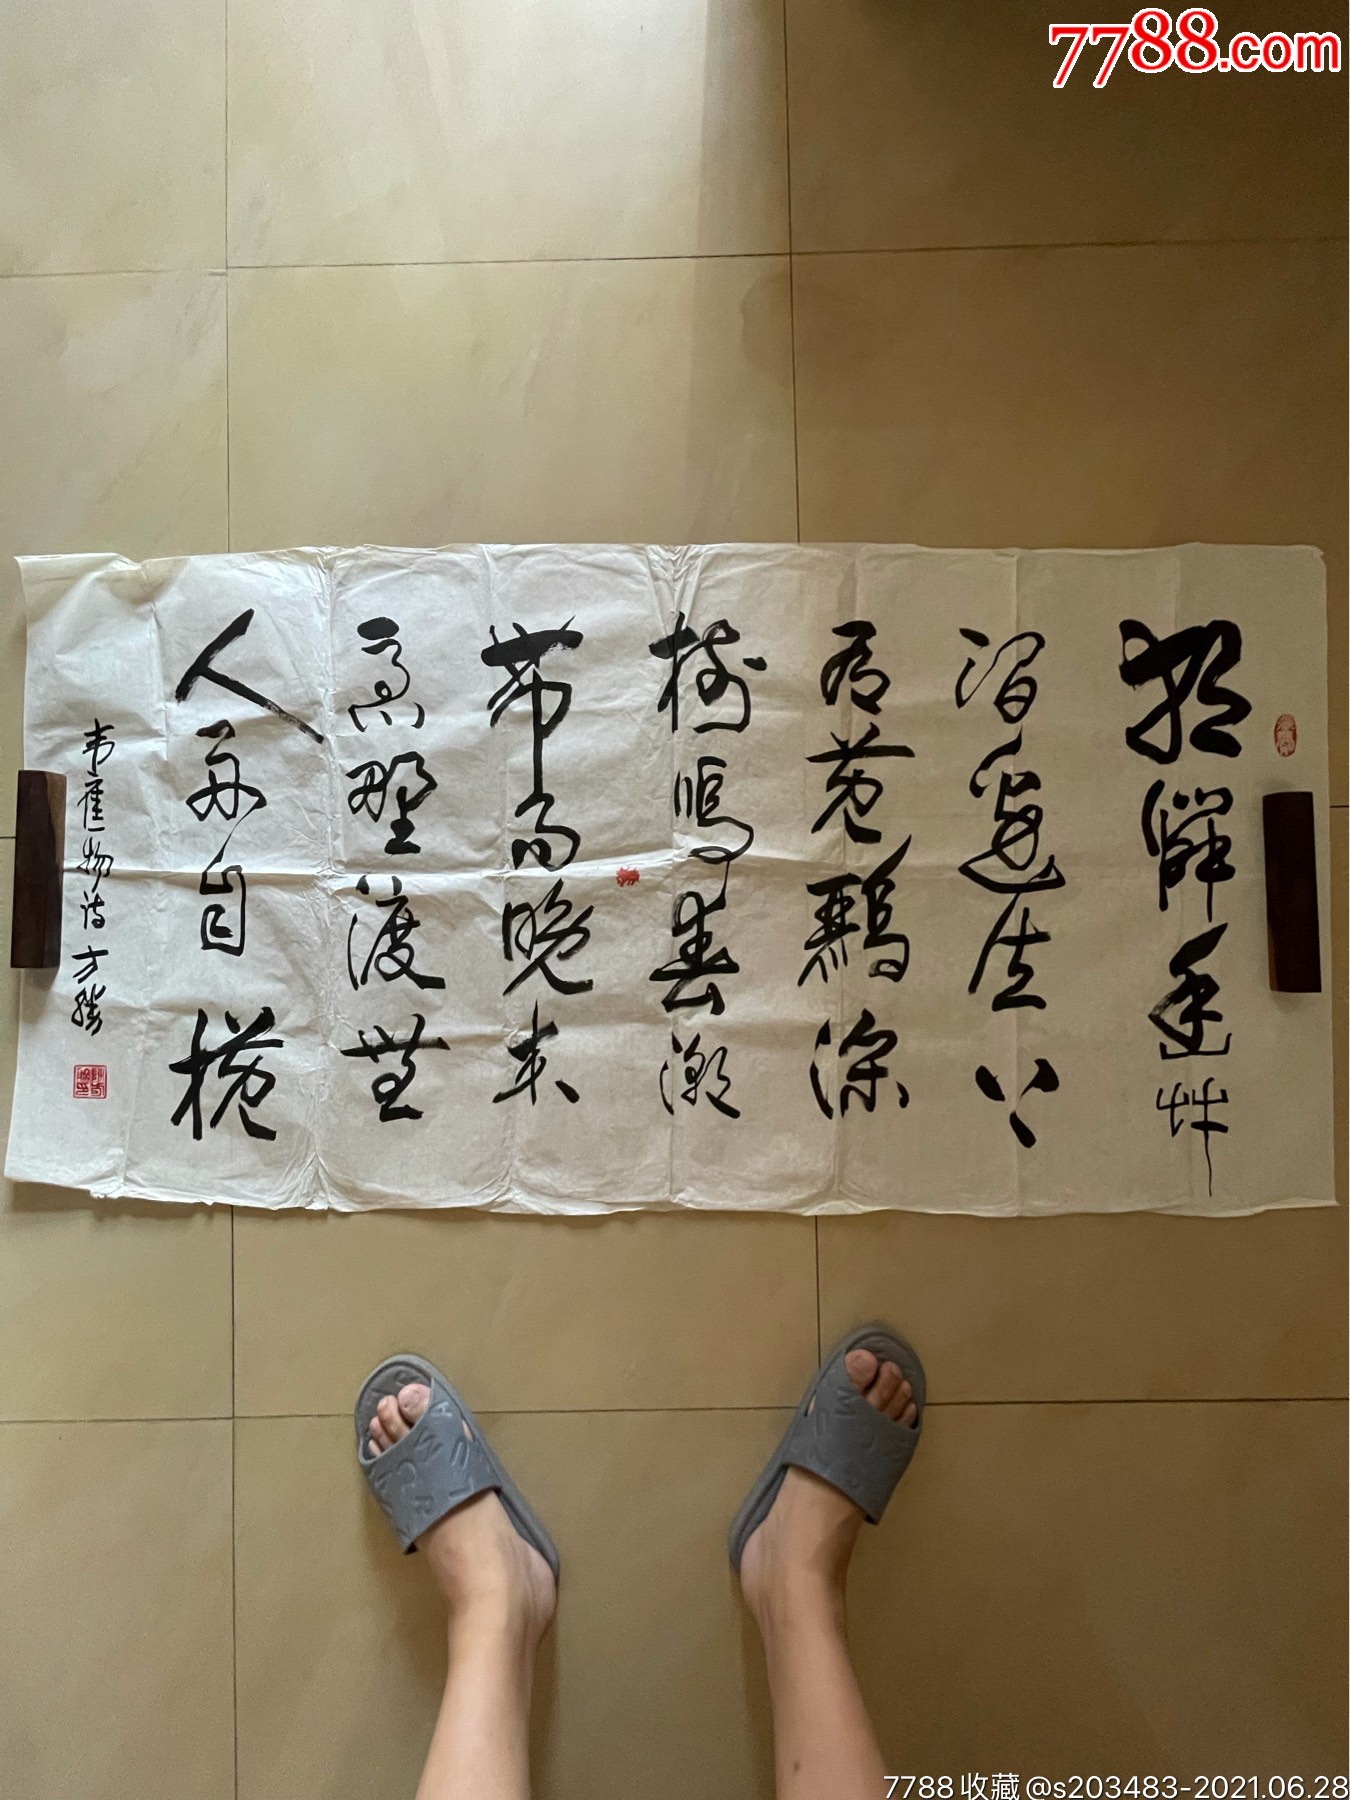 7788.com
獨憐幽艸
澗邊生上
有黄鸝深
樹鳴春潮
帶雨晚来
急野渡無
人舟自横
韦應物诗 方
7788收藏@s203483-2021.06.28